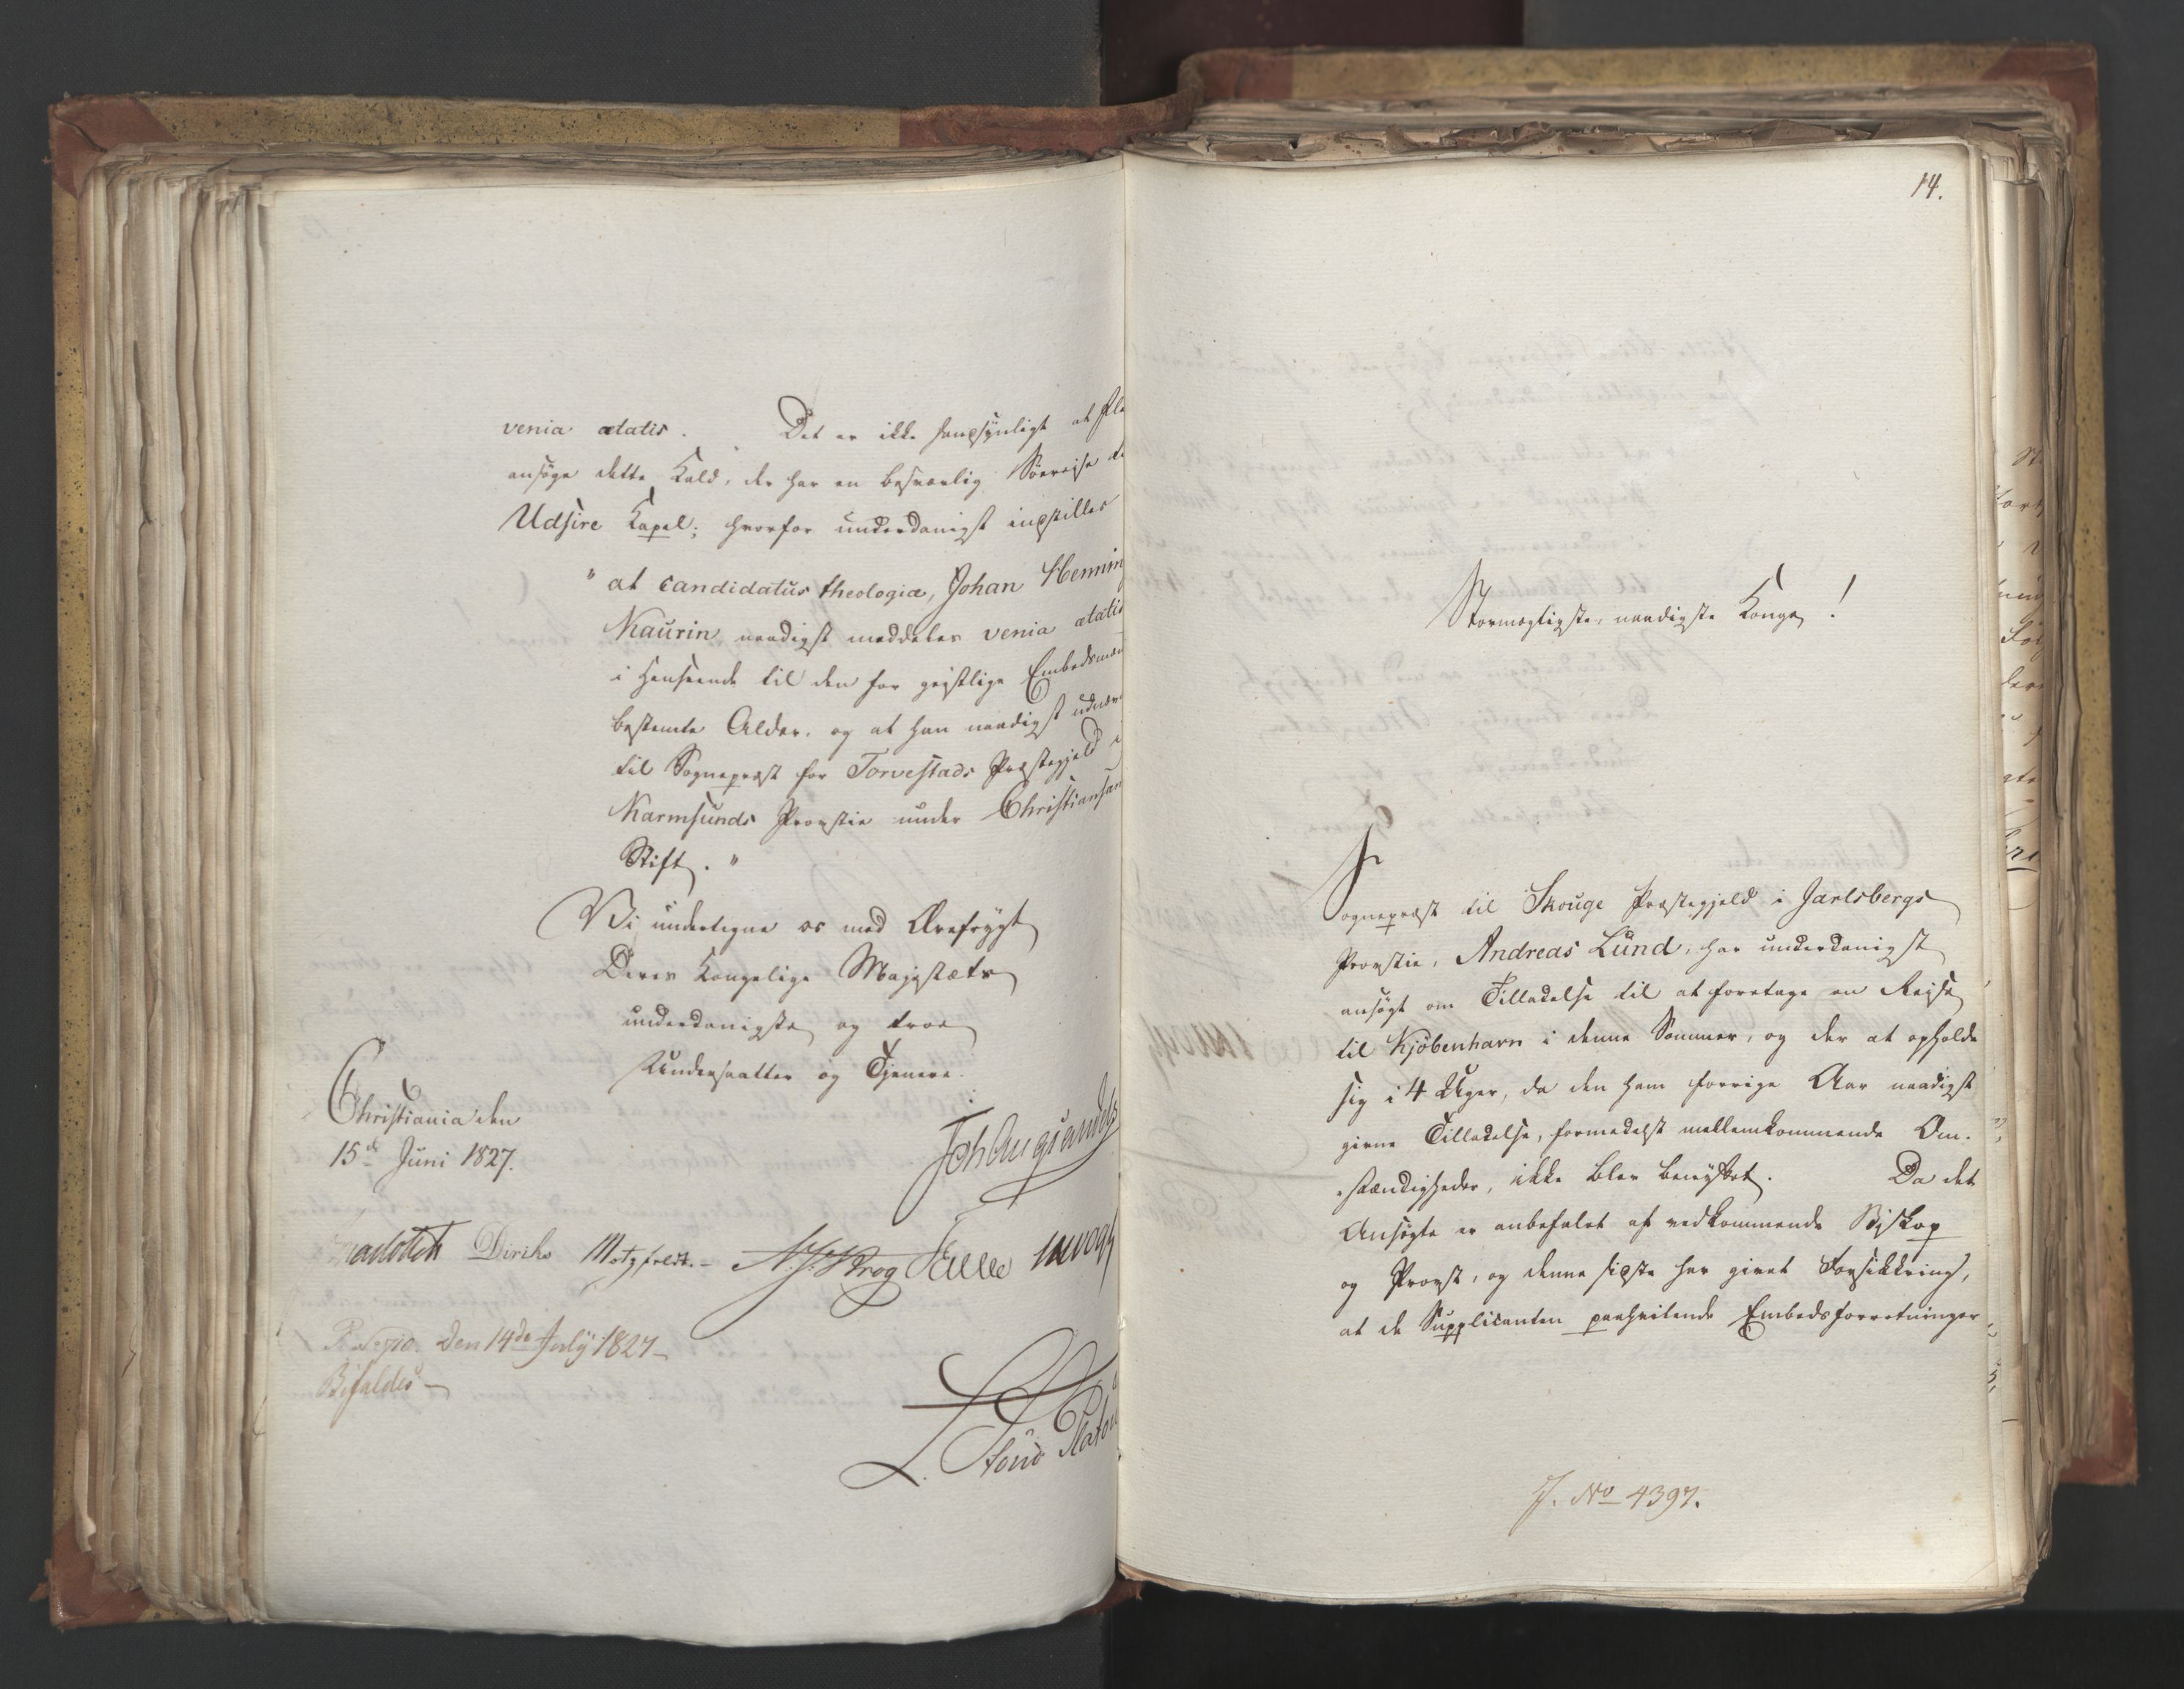 venia ætatis. Det er ikke sandsynligt at fle
ansøge dette Kald, der har en besværlig Søereise ti
Udsire Kapel; hvorfor underdanigst indstilles
"at candidatus theologiæ, Johan Hennin
Kaurin naadigst meddeles venia ætatis
i Henseende til den for geistlige Embedsmæn
bestemte Alder, og at han naadigst udnæv
til Sognepræst for Torvestads Præstegjeld i
Karmsunds Provstie under Christiansan
Stift."
Vi undertegne os med Ærefrygt
Deres Kongelige Majestæts
underdanigste og troe
Undersaatter og Tjenere.
Christiania den
15de Juni 1827.
Diriks Motzfeldt.- Krog
den 14de July 1827-
Bifaldes-
L. Stoud Platou
14.
Stormægtigste, naadigste Konge!
Sognepræst til Skouge Præstegjeld i Jarlsbergs
Provstie, Andreas Lund, har underdanigst
ansøgt om Tilladelse til at foretage en Reise
til Kjöbenhavn i denne Sommer, og der at opholde
sig i 4 Uger, da den ham forrige Aar naadigst
givne Tilladelse, formedelst mellemkommende Om-
stændigheder, ikke blev benyttet. Da det
Ansøgte er anbefalet af vedkommende Biskop
og Provst, og denne sidste har givet Forsikkring,
at de Supplicanten paahvilende Embedsforretninger
J. No 4397.